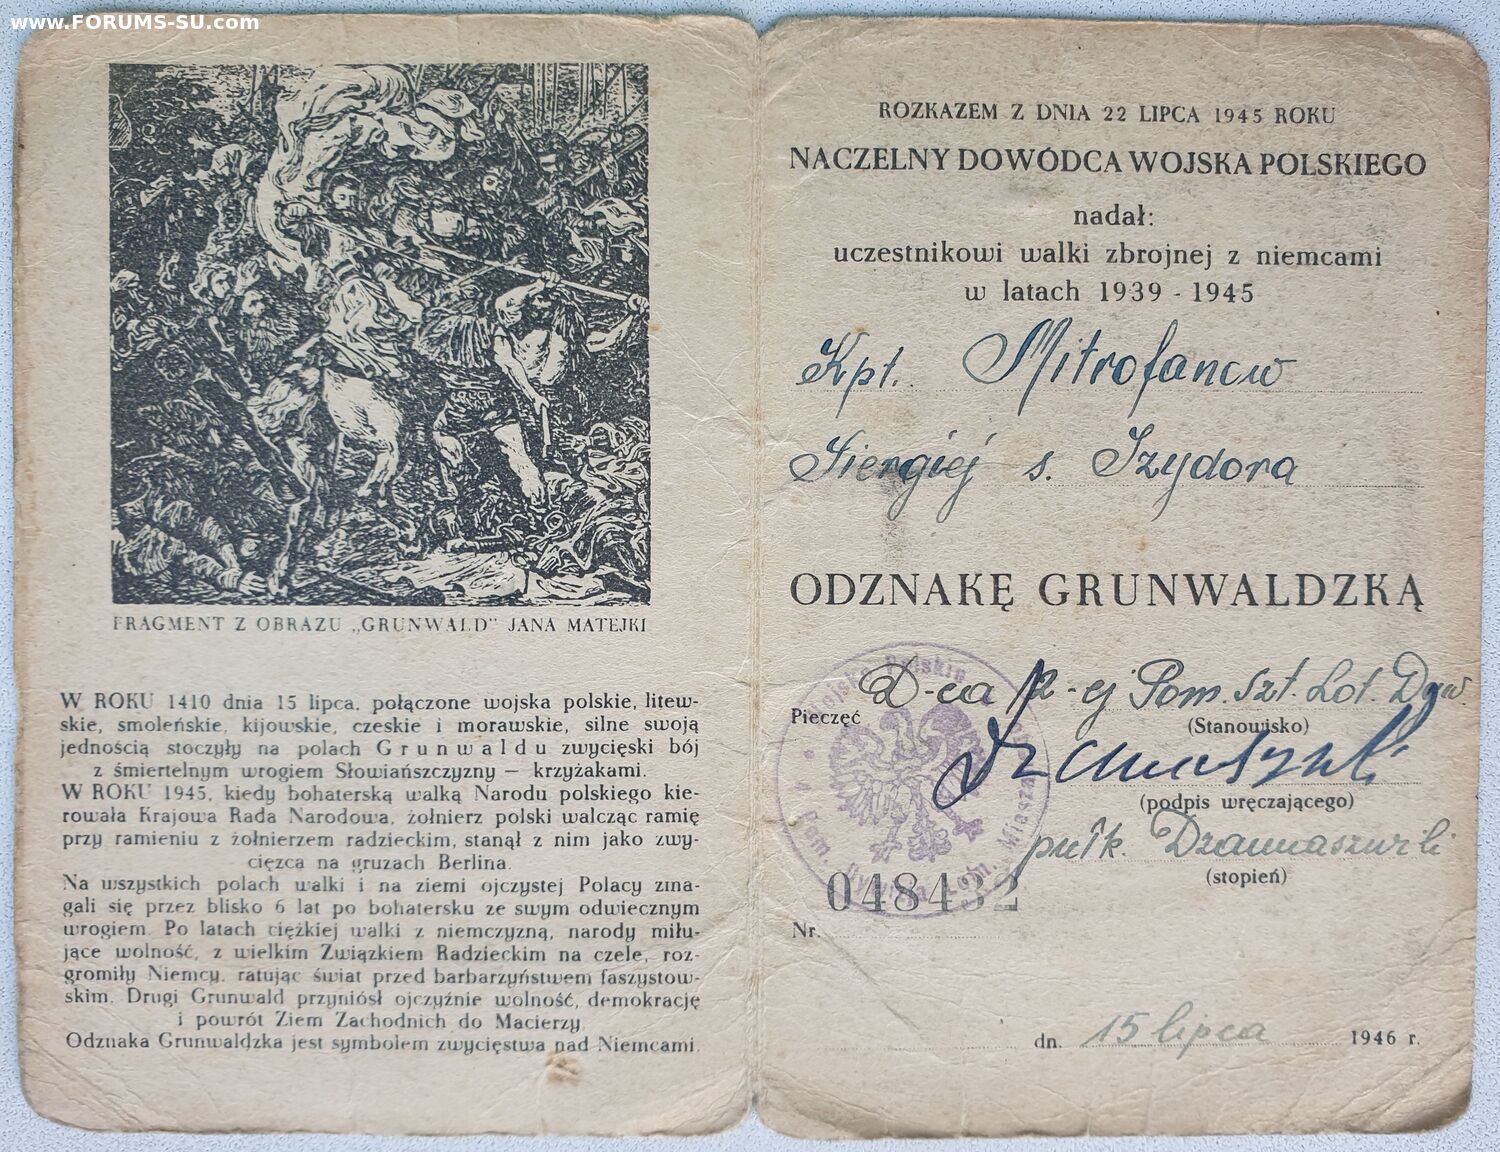 www.FORUMS-SU.com
FRAGMENT Z OBRAZU „GRUNWALD" JANA MATEJKI
W ROKU 1410 dnia 15 lipca, połączone wojska polskie, litew-
skie, smoleńskie, kijowskie, czeskie i morawskie, silne swoją
jednością stoczyły na polach Grunwaldu zwycięski bój
z śmiertelnym wrogiem Słowiańszczyzny — krzyżakami.
W ROKU 1945, kiedy bohaterską walką Narodu polskiego kie-
rowała Krajowa Rada Narodowa, żołnierz polski walcząc ramię
przy ramieniu z żołnierzem radzieckim, stanął z nim jako zwy-
cięzca na gruzach Berlina.
Na wszystkich polach walki i na ziemi ojczystej Polacy zma-
gali się przez blisko 6 lat po bohatersku ze swym odwiecznym
wrogiem. Po latach ciężkiej walki z niemczyzną, narody miłu-
jące wolność, z wielkim Związkiem Radzieckim na czele, roz-
gromiły Niemcy, ratując świat przed barbarzyństwem faszystow-
skim. Drugi Grunwald przyniósł ojczyźnie wolność, demokrację
i powrót Ziem Zachodnich do Macierzy.
Odznaka Grunwaldzka jest symbolem zwycięstwa nad Niemcami.
ROZKAZEM Z DNIA 22 LIPCA 1945 ROKU
NACZELNY DOWÓDCA WOJSKA POLSKIEGO
nadał:
uczestnikowi walki zbrojnej z niemcami
w latach 1939 - 1945
Kpt. Mitrofanow
Siergiej s. Izydora
ODZNAKĘ GRUNWALDZKĄ
Wojsko Polskie
D-ca 12-ej Pom. Szt. Lot. Dyw.
Pieczęć
(Stanowisko)
(podpis wręczającego)
płk. Dzamaszwili
(stopień)
048432
Nr.
dn. 15 lipca 1946 r.